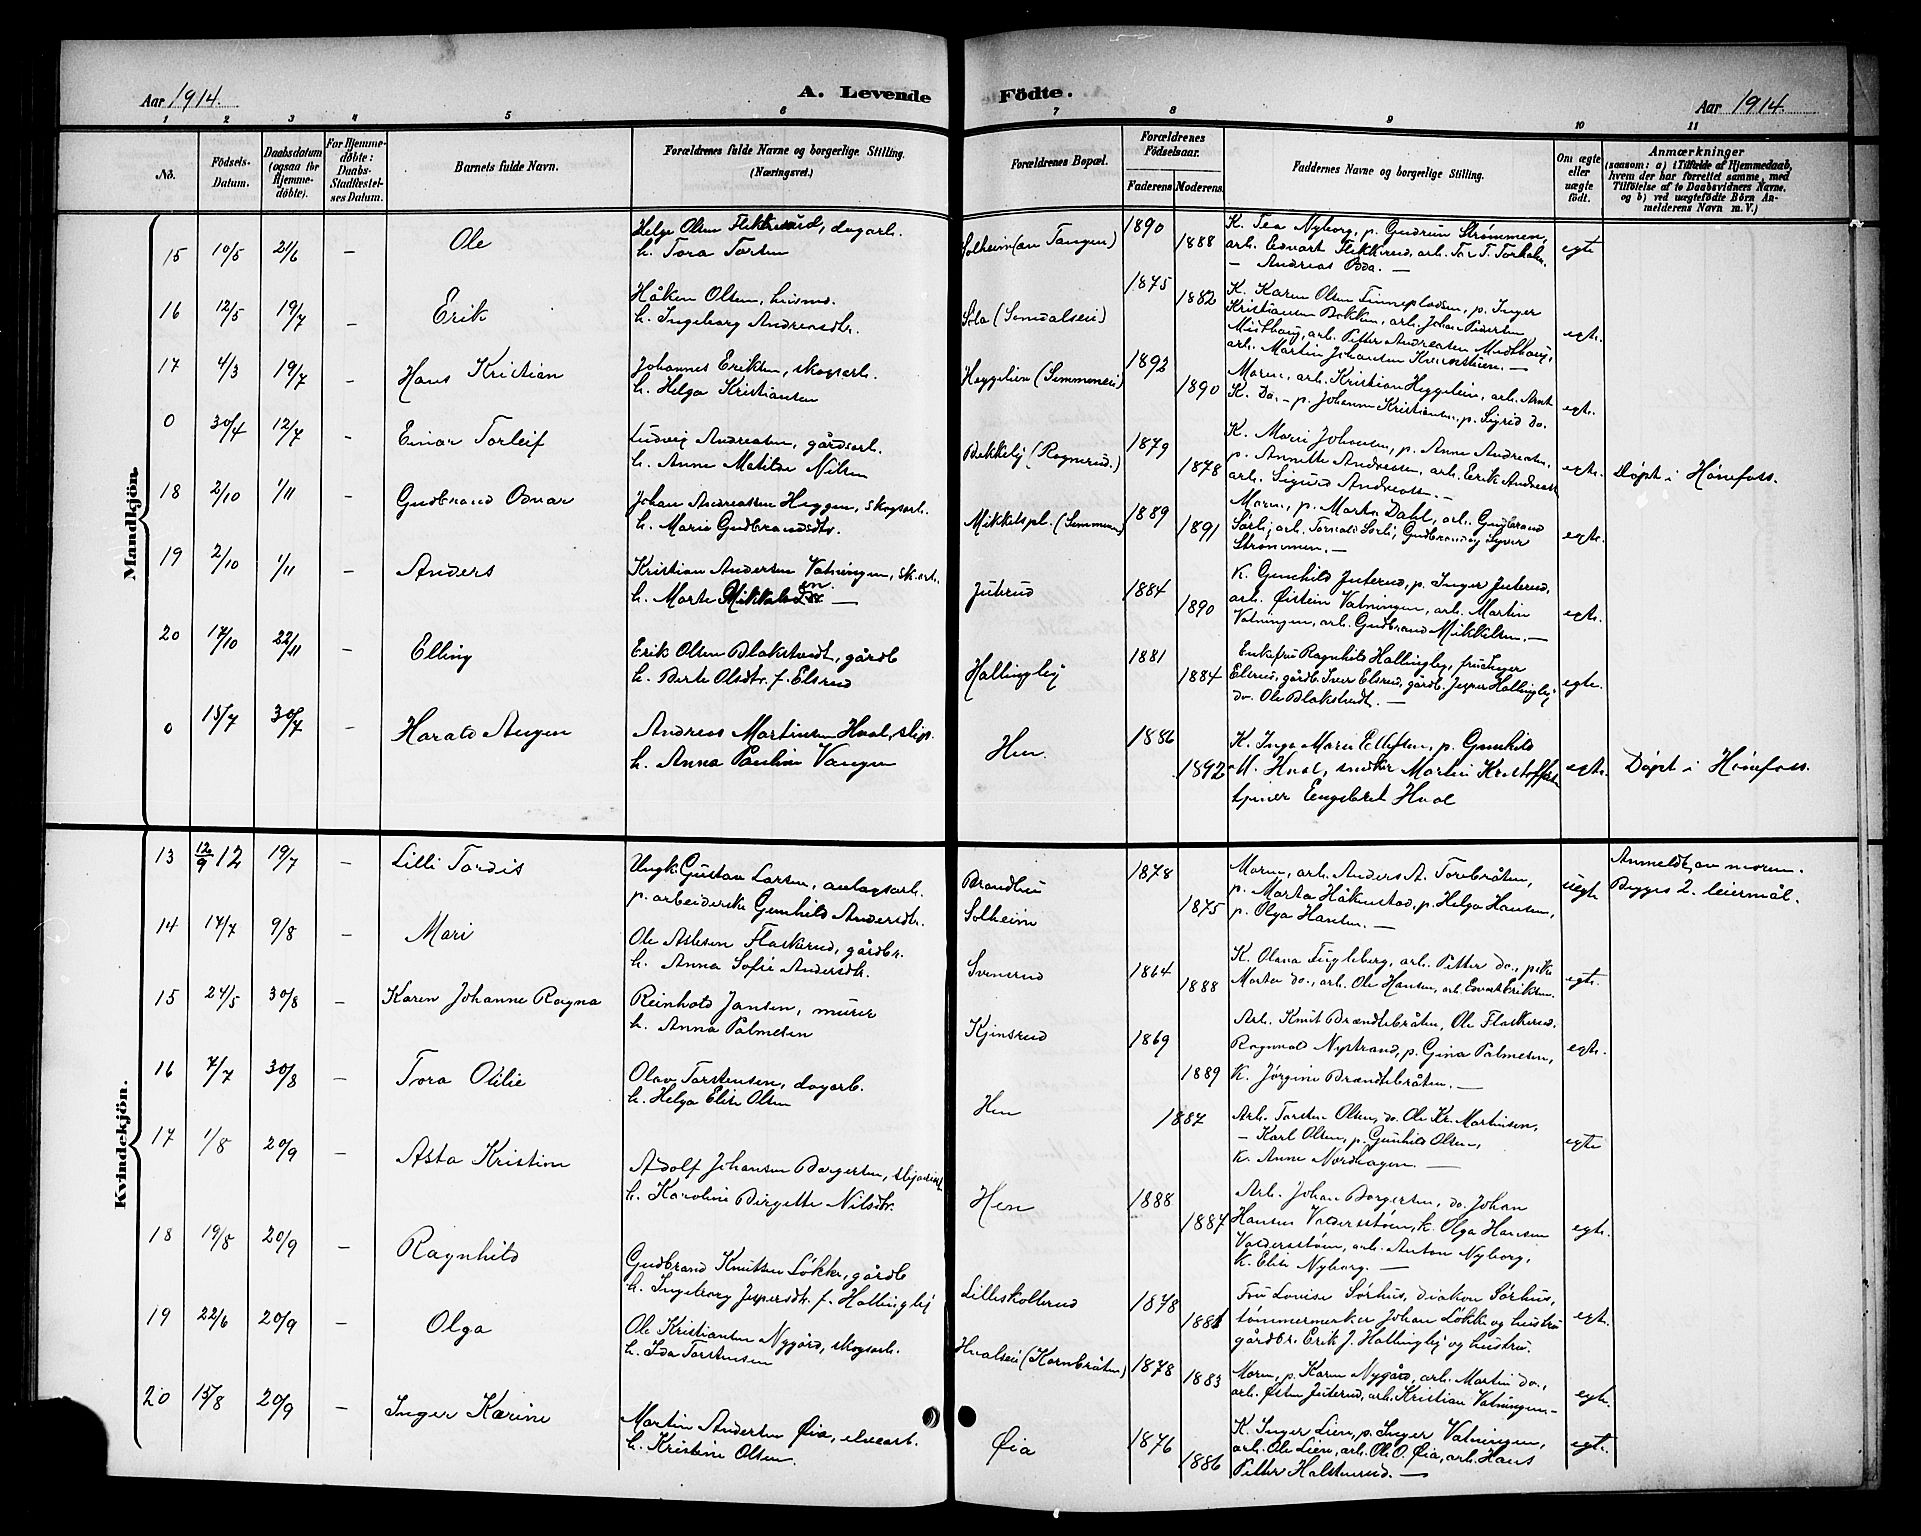 Aar 1914.
A. Levende
Fødte.
Aar 1914.
1 2 3 4 5 6 7 8 9 10 11
No.
Fødsels-
Datum.
Daabsdatum
(ogsaa for
Hjemme-
døbte).
For Hjemme-
døbte:
Daabs-
Stadfæstel-
ses Datum.
Barnets fulde Navn.
Forældrenes fulde Navne og borgerlige Stilling.
(Næringsvei.)
Forældrenes Bopæl.
Forældrenes
Fødselsaar.
Faderens.
Moderens.
Faddernes Navne og borgerlige Stilling.
Om ægte
eller
uægte
født.
Anmærkninger
(saasom: a) i Tilfælde af Hjemmedaab,
hvem der har forrettet samme, med
Tilføielse af to Daabsvidners Navne,
og b) ved uægtefødte Børn An-
melderens Navn m. V.)
Mandkjön.
15 10/5 21/6 - Ole
Helge Olsen Flekkerud, dagarb.
h. Tora Torsen
Solheim (av Tangen) 1890 1888
K. Tea Nyborg, p. Gudrun Strømmen,
arb. Edvart Flekkerud, arb. Tor T.
- Andreas -
egte
16 12/5 19/7 - Erik
Håken Olsen, husmd.
h. Ingeborg Andreasdtr.
1875 1882
K. Karen Olsen Finnepladsen, p. Inger
Kristiansen Bakken, arb. Johan Pedersen
Midthaug, arb. Petter Andreasen Midthaug,
arb. Martin Johansen -
egte.
17 4/3 19/7 - Hans Kristian
Johannes Eriksen, skogsarb.
h. Helga Kristiansen
Heggelien (Semmenseie) 1892 1890
Moren, arb. Kristian Heggelien, arb. Arnt
K. Do. - p. Johanne Kristiansen, p. Sigrid do.
egte.
0 30/4 12/7 - Einar Torleif
Ludvig Andreasen, gårdsarb.
h. Anne Matilde Nilsen
Bekkelej (Rognerud.) 1879 1878
K. Marie Johansen, p. Anne Andreasen,
p. Annette Andreasen, arb. Erik Andreasen
arb. Sigurd Andreasen. -
egte. Døpt i Hønefoss.
18 2/10 1/11 - Gudbrand Odvar
Johan Andreassen Heggen, skogsarb.
h. Marie Gudbrandsdtr.
Mikkelspl. (Semmen) 1889 1891
Moren, p. Marta Dahl, arb. Gudbrand
Sørli, arb. Torvald Sørli, Gudbrand og Syver
Strømmen. -
egte.
19 2/10 1/11 - Anders
Kristian Andersen Vatningen, sk.arb.
h. Marte Mikkelsen -
Juterud 1884 1890
K. Gunhild Juterud, p. Inger Juterud,
arb. Øistein Vatningen, arb. Martin
Vatningen, arb. Gudbrand Mikkelsen. -
egte.
20 17/10 22/11 - Elling
Erik Olsen Blakstvedt, gårdb
h. Berte Olsdtr. f. Elsrud
Hallinglej 1881 1884
Enkefru Ragnhild Hallinglej, fru Inger
Elsrud, gårdb. Iver Elsrud, gårdb. Jesper Hallinglej
do. Ole Blakstvedt. -
egte.
0 15/7 30/7 - Harald Asgen
Andreas Martinsen Hval, slip.
h. Anna Pauline Vangen
Hen. 1886 1892
K. Inga Marie Ellefsen, p. Gunhild
M. Hval, snedker Martin Kristoffersen
Engebret Hval
egte. Døpt i Hønefoss.
Kvindekjön.
13 12/9 12 19/7 - Lilli Tordis
Ungk. Gustav Larsen, anlagsarb.
p. arbeiderske Gunhild Andersdtr.
Brandlie
Solheim
1878 1875
Moren, arb. Anders A. Torebråten,
p. Marta Håkenstad, p. Helga Hansen,
p. Olga Hansen. -
uegte
Anmeldt av moren.
Begges 2. leiermål.
14 17/7 9/8 - Mari
Ole Aslesen Flaskerud, gårdbr.
h. Anna Sofie Andersdtr.
Svenerud 1864 1888
K. Olava Fugleberg, arb. Petter do.,
Marten do., arb. Ole Hansen, arb. Edvart Eriksen.
egte.
15 24/5 30/8 - Karen Johanne Ragna
Reinhold Jansen, murer
h. Anna Palmesen
Kjinsrud 1869 1889
Arb. Knut Brændtebråten, Ole Flaskerud,
Ragnvald Nystrand, p. Gina Palmesen,
K. Jørgine Brændtebråten. -
egte.
16 7/7 30/8 - Tora Otilie
Olav Torstensen, dagarb.
h. Helga Elise Olsen
Hen 1887
Arb. Torsten Olsen, do. Ole Kr. Martinsen,
- Karl Olsen, p. Gunhild Olsen,
K. Anne Nordhagen. -
egte
17 1/8 20/9 - Asta Kristine
Adolf Johansen Borgersen,
h. Karoline Birgitte Nilsdtr.
Hen 1888 1887
Arb. Johan Borgersen, do. Johan
Hansen Valdersstøen, k. Olga Hansen
Valdersstøen, arb. Anton Nyborg,
K. Elise Nyborg. -
egte.
18 19/8 20/9 - Ragnhild
Gudbrand Knutsen Løkke, gårdb
h. Ingeborg Jespersdtr. f. Hallinglej
Lilleskollerud 1878 1881
Fru Louise Sørhus, diakon Sørhus,
tømmermerker Johan Løkke og hustru
gårdbr. Erik J. Hallinglej og hustru.
egte.
19 22/6 20/9 - Olga
Ole Kristiansen Nygård, skogsarb.
h. Ida Torstensen
Hvalseie (Kornbråten) 1878 1883
Moren, p. Karen Nygård, arb. Martin do.,
arb. Østen Juterud, arb. Kristian Vatningen -
egte.
20 15/8 20/9 - Inger Karine
Martin Andersen Øia, elvearb.
h. Kristine Olsen.
Øia 1876 1886
K. Inger Lien, p. Inger Vatningen,
arb. Ole Lien, arb. Ole O. Øia, arb. Hans
Petter Halstenrud. -
egte.